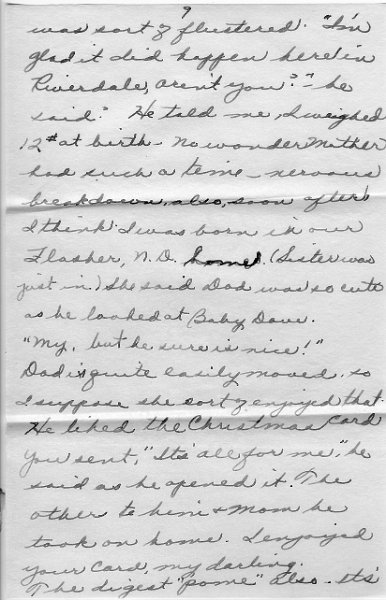 7
was sort of flustered. "I'm
glad it did happen here in
Riverdale, aren't you?" - he
said." He told me, I weighed
12# at birth - No wonder Mother
had such a time - nervous
breakdown, also, soon after
I think I was born in our
Flasher, N.D. home. (Sister was
just in.) She said Dad was so cute
as he looked at Baby Dave.
"My, but he sure is nice!"
Dad is quite easily moved, so
I suppose she sort of enjoyed that.
He liked the Christmas card
you sent, "It's all for me" he
said as he opened it. The
other to him & Mom he
took on home. I enjoyed
your card, my darling.
The digest "pome" also - It's